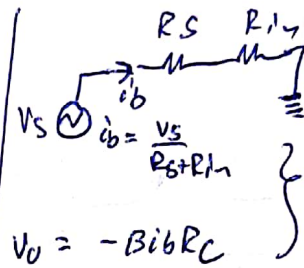 RS Rin
ib
VS ib = VS / RS+Rin
VO = -BibRC